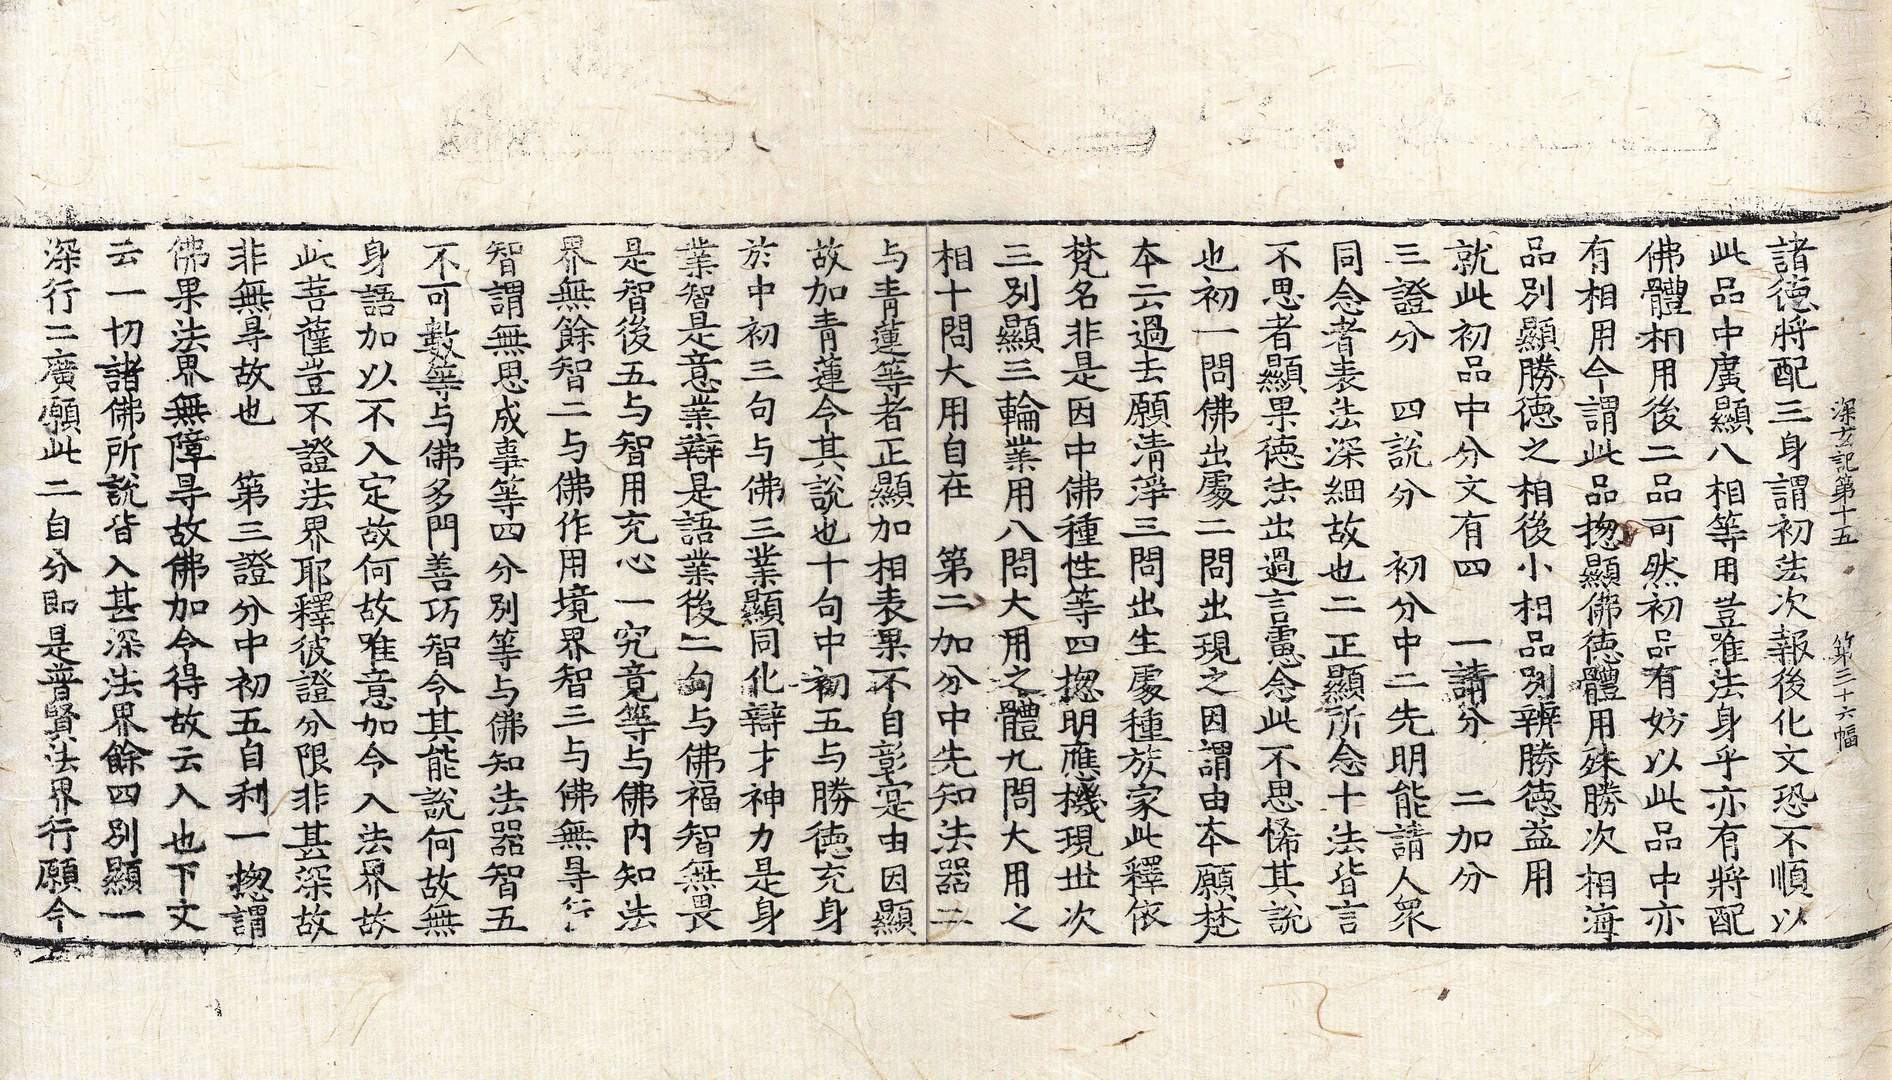 深玄記第十五　第三十六幅
諸徳將配三身謂初法次報後化文恐不順以
此品中廣顯八相等用豈唯法身乎亦有將配
佛體相用後二品可然初品有妨以此品中亦
有相用今謂此品揔顯佛徳體用殊勝次相海
品別顯勝徳之相後小相品別辨勝徳益用
就此初品中分文有四　一請分　二加分
三證分　四說分　初分中二先明能請人衆
同念者表法深細故也二正顯所念十法皆言
不思者顯果徳法出過言慮念此不思悕其說
也初一問佛出處二問出現之因謂由本願梵
本云過去願清淨三問出生處種族家此釋依
梵名非是因中佛種性等四揔明應機現世次
三別顯三輪業用八問大用之體九問大用之
相十問大用自在　第二加分中先知法器二
与青蓮等者正顯加相表果不自彰寔由因顯
故加青蓮令其說也十句中初五与勝徳充身
於中初三句与佛三業顯同化辯才神力是身
業智是意業辯是語業後二句与佛福智無畏
是智後五与智用充心一究竟等与佛内知法
界無餘智二与佛作用境界智三与佛無㝵行
智謂無思成事等四分別等与佛知法器智五
不可數等与佛多門善巧智令其能說何故無
身語加以不入定故何故唯意加令入法界故
此菩薩豈不證法界耶釋彼證分限非甚深故
非無㝵故也　第三證分中初五自利一揔謂
佛果法界無障㝵故佛加令得故云入也下文
云一切諸佛所說皆入甚深法界餘四別顯一
深行二廣願此二自分即是普賢法界行願今